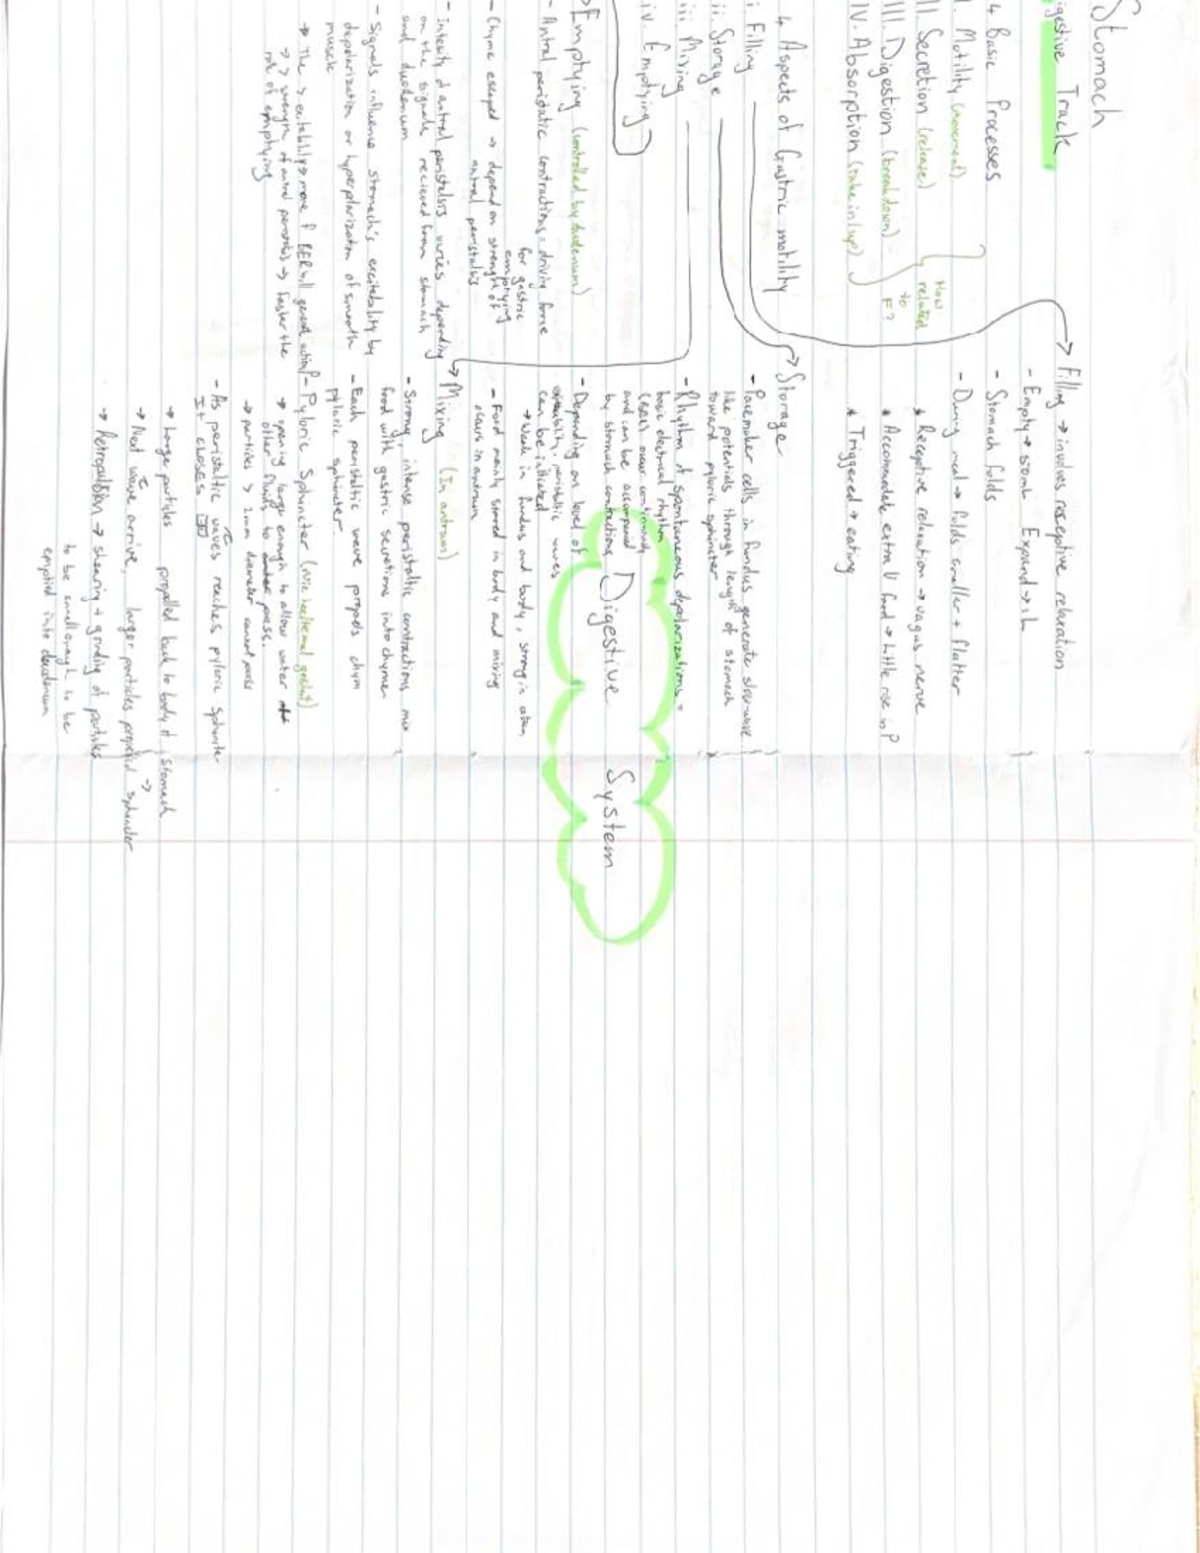 Stomach
igestive Track
4 Basic Processes
I. Motility (movement)
II. Secretion (release)
III. Digestion (breakdown)
IV. Absorption (take in/up)
How
related
to
F?
4 Aspects of Gastric motility
i Filling
ii. Storage
iii Mixing
iv. Emptying
Emptying (controlled by duodenum)
- Antral peristatic contractions = driving force
for gastric
emptying
- Chyme escaped → depend on strength of
antral peristalsis
- Intesity of antral peristalsis varies depending
on the signals recieved from stomach
and duodenum
- Signals influence stomach's excitability by
depolarization or hyperpolarization of smooth
muscle
→ The > excitability → more f BER will generate action P
→ > strength of antral peristalsis → faster the
rate of emptying
Filling → involves receptive relaxation
- Empty → 50mL Expand → 1L
- Stomach folds
- During meal → folds smaller + flatter
* Receptive relaxation → vagus nerve
* Accommodate extra V food → little rise in P
* Triggered → eating
Storage
- Pacemaker cells in fundus generate slow-wave
like potentials through length of stomach
toward pyloric sphincter
- Rhythm of spontaneous depolarizations =
basic electrical rhythm
(BER) occur continuously
and can be accompanied
by stomach contractions
- Depending on level of
excitability, peristaltic waves
can be initiated
→ Weak in fundus and body, strong in
- Food mainly stored in body and mixing
occurs in antrum
Mixing (In antrum)
- Strong, intense peristaltic contractions mix
food with gastric secretions into chyme
- Each peristaltic wave propels chym
pyloric sphincter.
- Pyloric Sphincter
→ opening large enough to allow water
other fluids to pass.
→ particles > 2mm diameter cannot pass
- As peristaltic waves reaches pyloric sphincter
It CLOSES
→ Large particles propelled back to body of stomach
→ Next wave arrive, larger particles propelled sphincter
→ Retropulsion → shearing + grinding of particles
to be small enough to be
emptied into duodenum
Digestive System